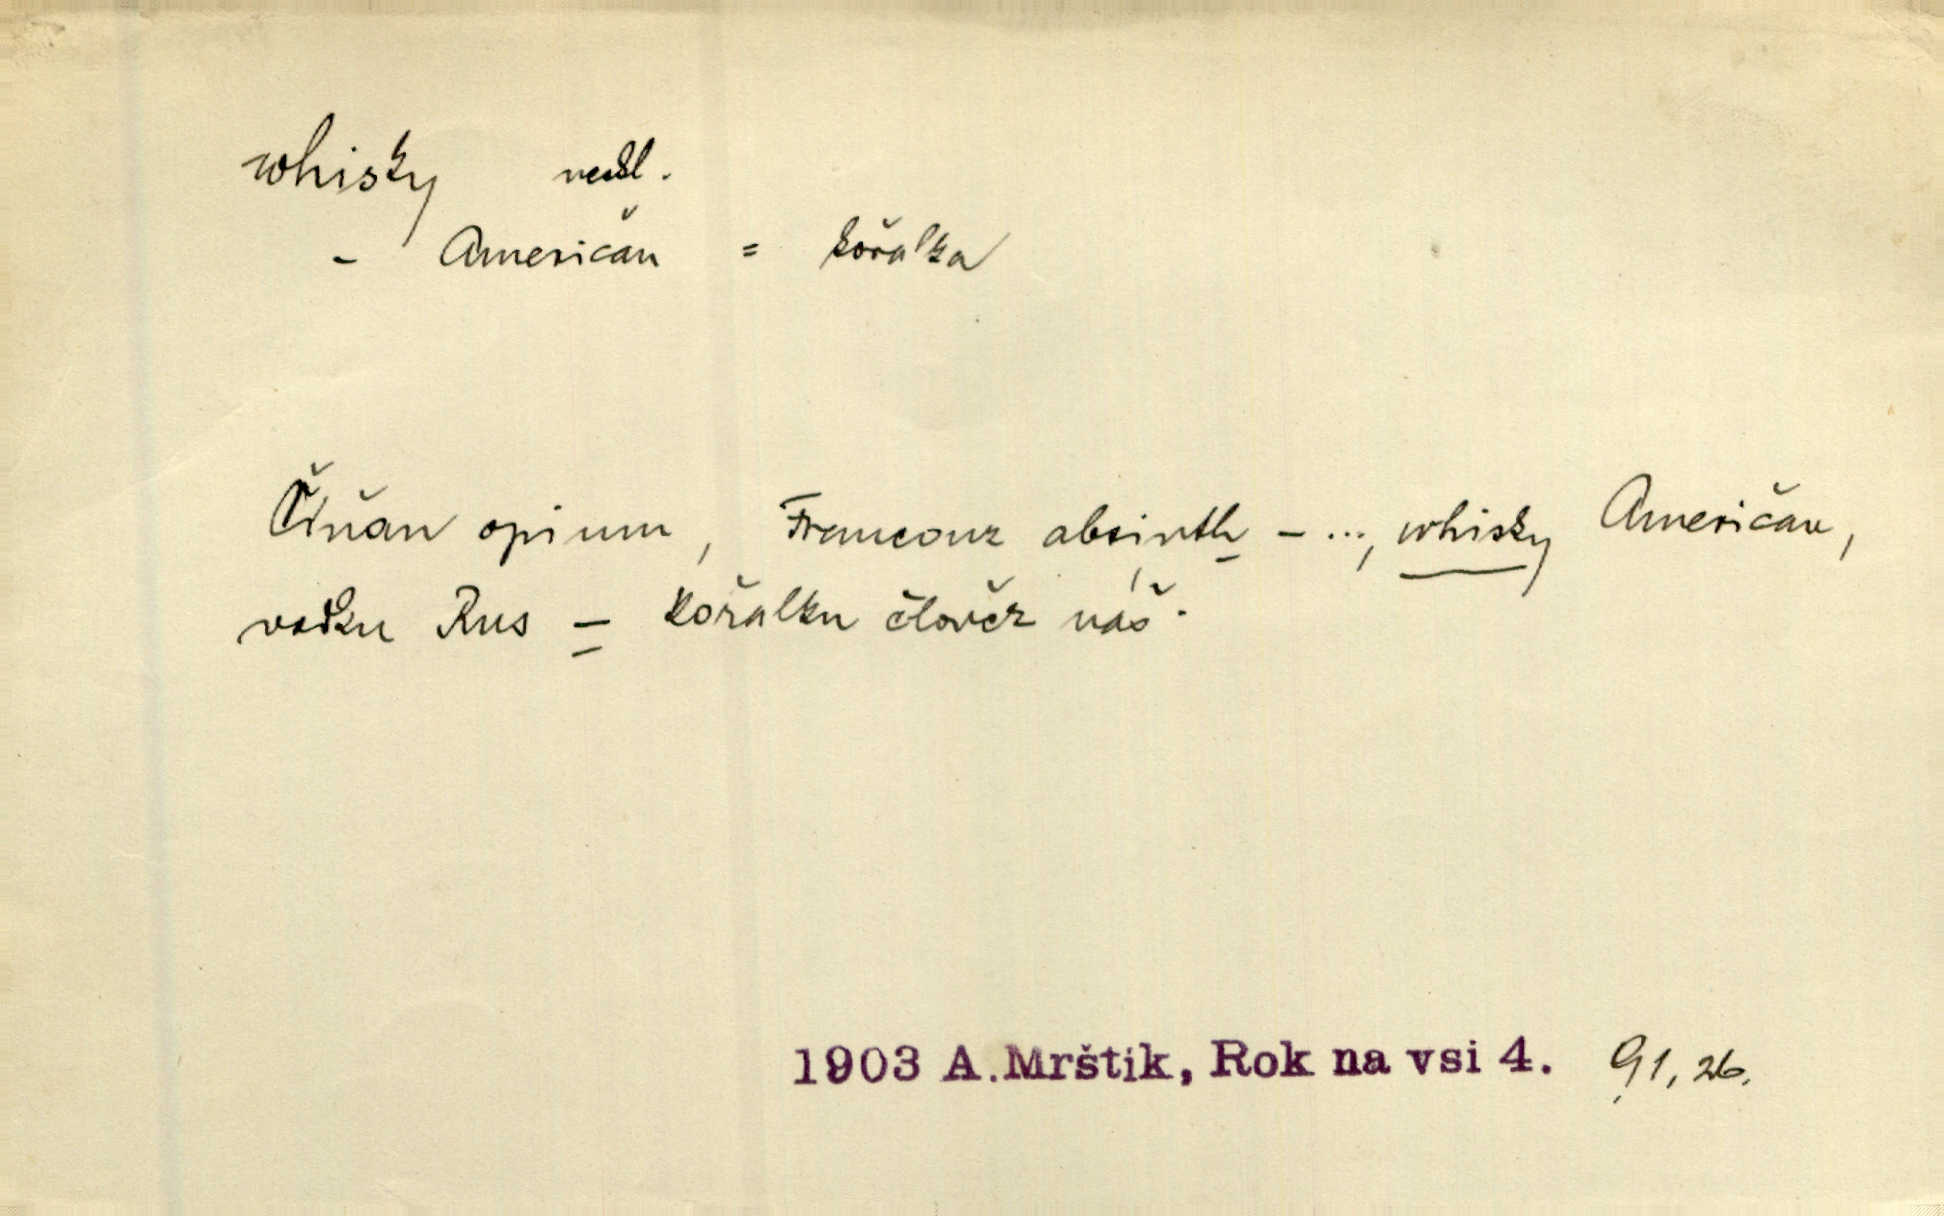 whisky neskl.
- Američan = kořalka
Číňan opium, Francouz absinth - ..., whisky Američan,
vodku Rus - kořalku člověk náš.
1903 A. Mrštík, Rok na vsi 4. 91, 26.